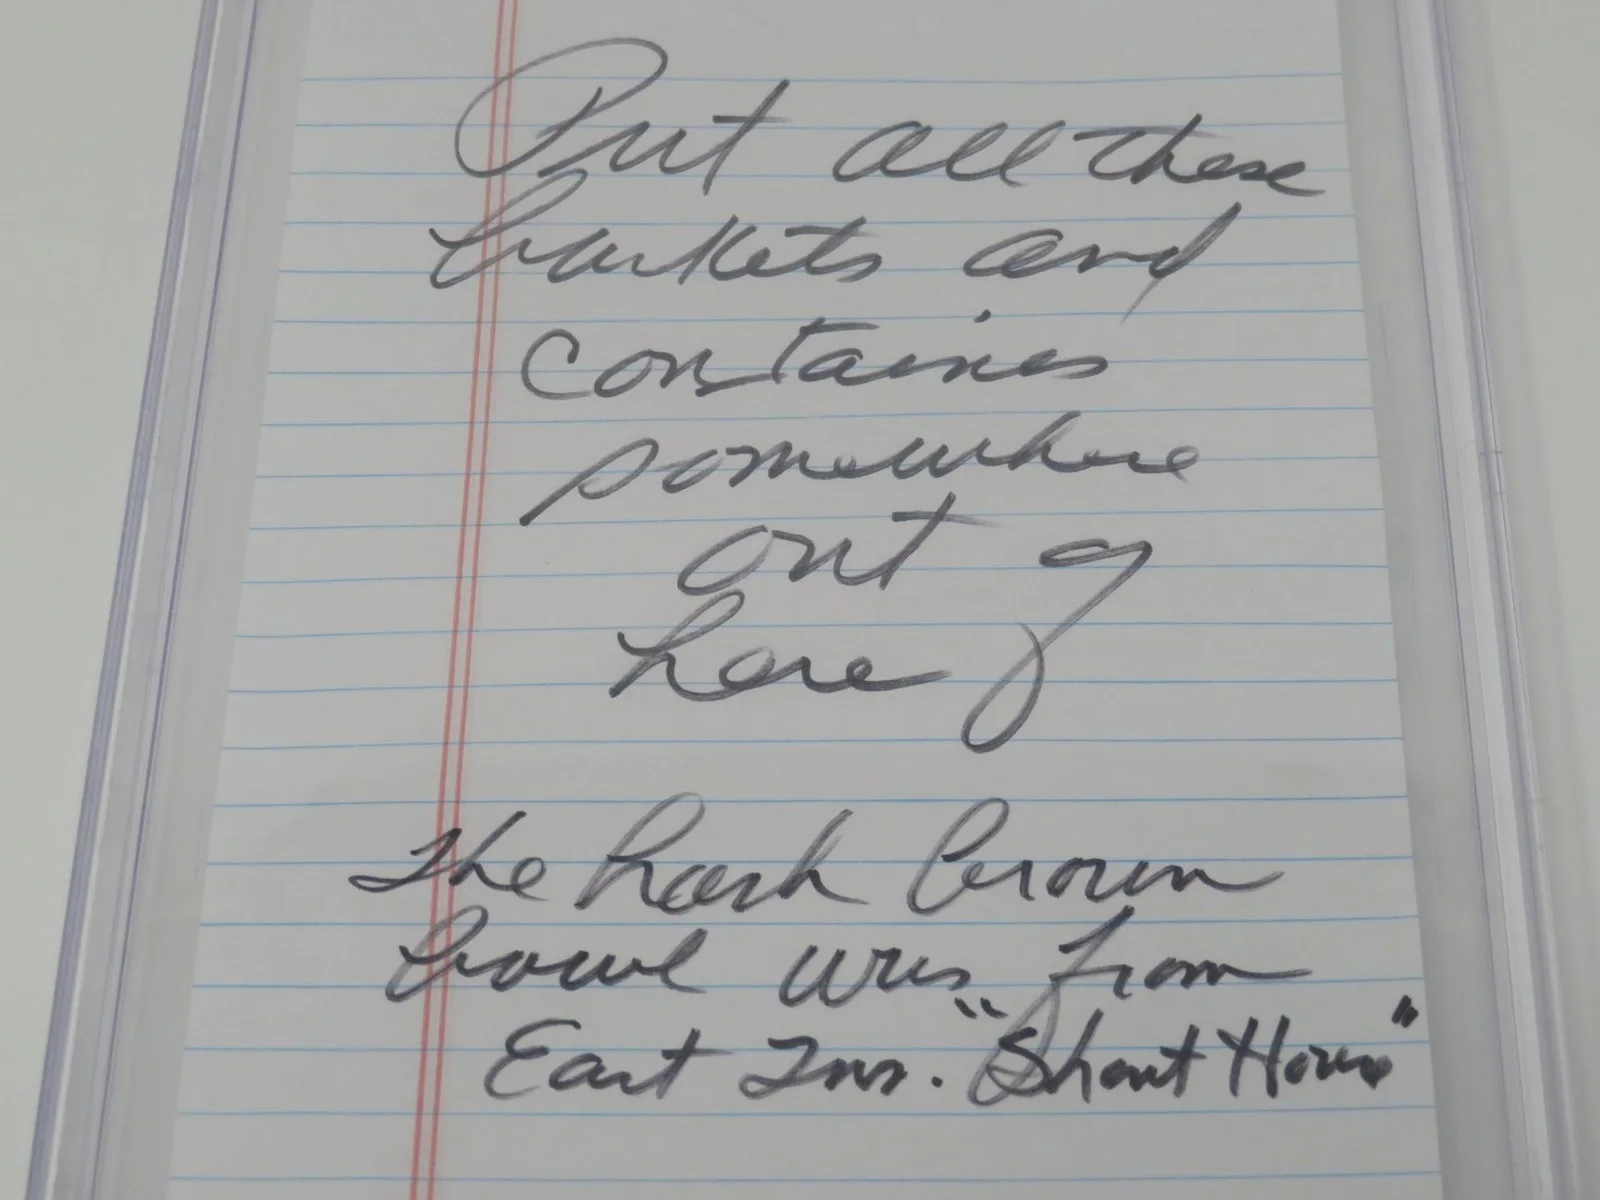 Put all these
baskets and
containes
somewhere
out of
here
The hash brown
bowl was from
East Inn. "Shout House"